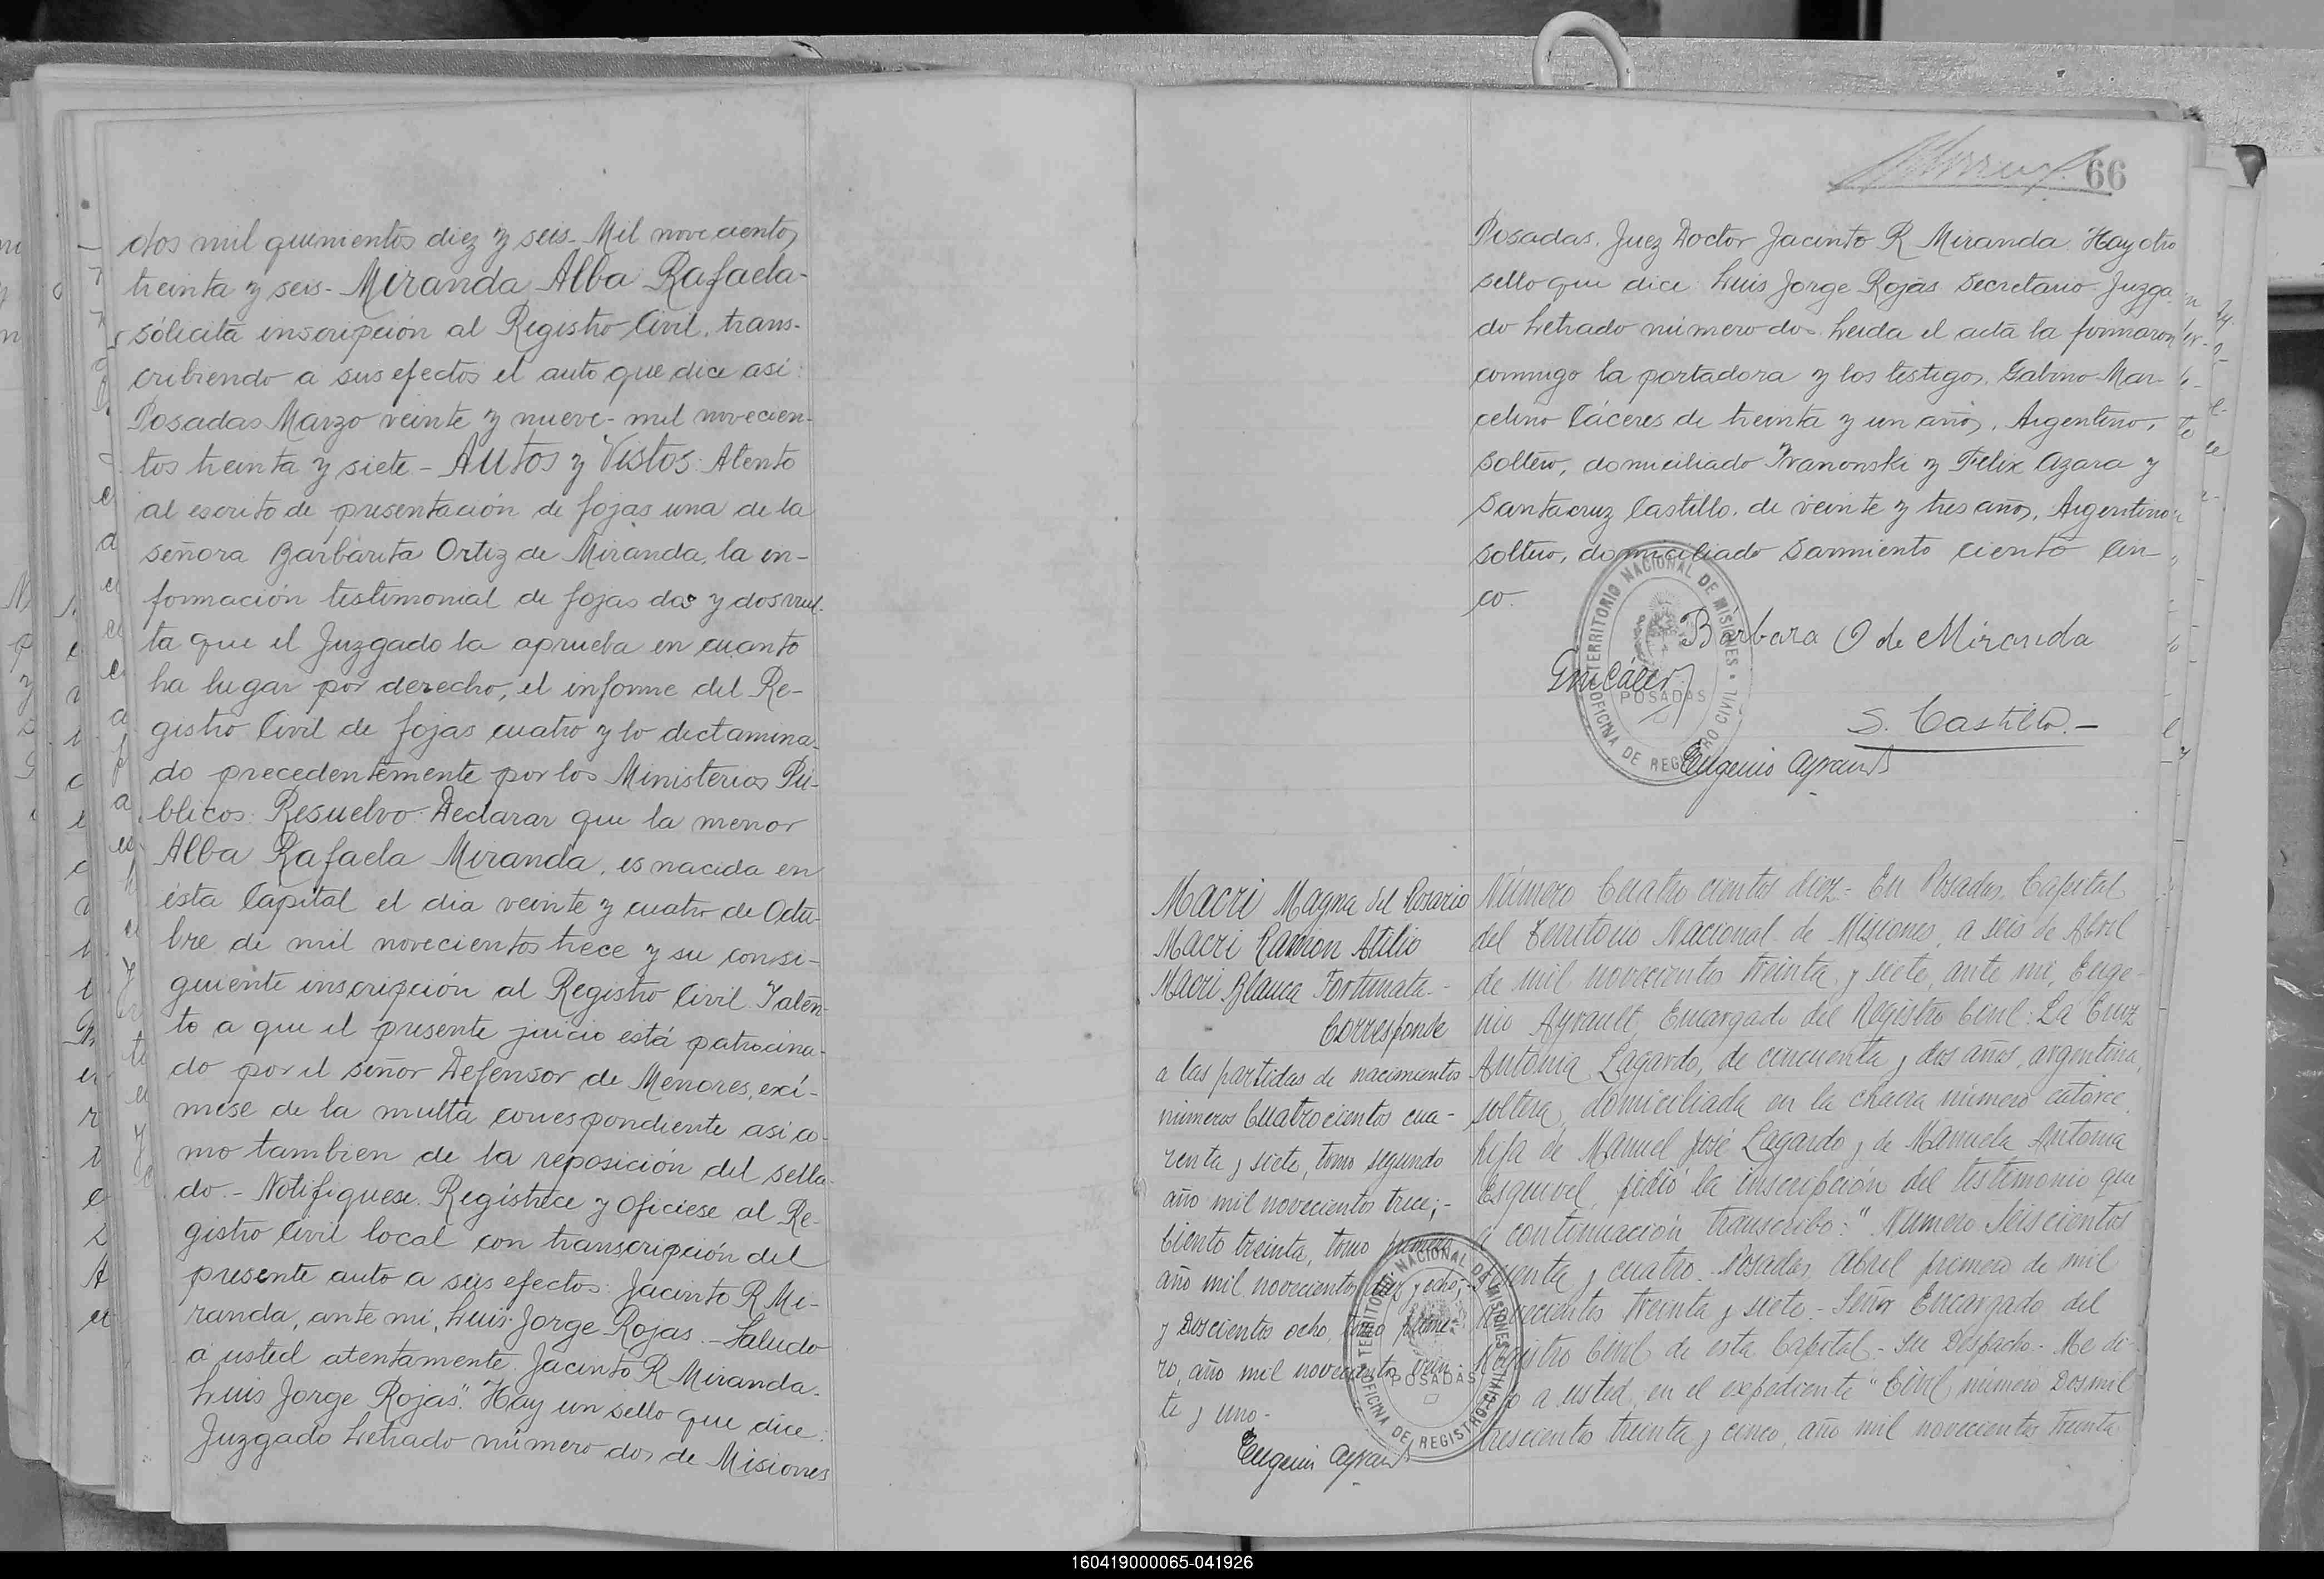 dos mil quinientos diez y seis- Mil novecientos
treinta y seis- Miranda Alba Rafaela-
sólicita inscripción al Registro Civil, trans-
cribiendo a sus efectos el auto que dice asi:
Posadas Marzo veinte y nueve- mil novecien-
tos treinta y siete - Autos y Vistos: Atento
al escrito de presentación de fojas una de la
señora Barbarita Ortiz de Miranda, la in-
formación testimonial de fojas dos y dos vuel-
ta que el Juzgado la aprueba en cuanto
ha lugar por derecho, el informe del Re-
gistro Civil de fojas cuatro y lo dictamina-
do precedentemente por los Ministerios Pú-
blicos: Resuelvo: Declarar que la menor
Alba Rafaela Miranda, es nacida en
ésta Capital el dia veinte y cuatro de Octu-
bre de mil novecientos trece y su consi-
guiente inscripción al Registro Civil. Y aten-
to a que el presente juicio está patrocina-
do por el señor Defensor de Menores, exí-
mese de la multa correspondiente asi co-
mo tambien de la reposición del sella-
do.- Notifiquese. Regístrece y Oficiese al Re-
gistro Civil local con transcripción del
presente auto a sus efectos: Jacinto R. Mi-
randa, ante mi, Luis Jorge Rojas.- Saludo
a usted atentamente. Jacinto R. Miranda.
Luis Jorge Rojas". Hay un sello que dice:
Juzgado Letrado número dos de Misiones
66
Posadas. Juez Doctor Jacinto R. Miranda. Hay otro
sello que dice: Luis Jorge Rojas. Secretario. Juzga-
do Letrado número dos. Leida el acta la firmaron
conmigo la portadora y los testigos, Gabino Mar-
celino Cáceres de treinta y un años, Argentino,
soltero, domiciliado Ivanonski y Felix Azara y
Santacruz Castillo, de veinte y tres años, Argentino
soltero, domiciliado Sarmiento ciento cin-
co.
TERRITORIO NACIONAL DE MISIONES
OFICINA DE REGISTRO CIVIL
POSADAS
Bárbara O de Miranda
S. Castillo.-
Eugenio Ayrault
Macri Magna del Rosario
Macri Ramon Atilio
Macri Blanca Fortunata.-
Corresponde
a las partidas de nacimientos
números Cuatrocientos cua-
renta y siete, tomo segundo
año mil novecientos trece;-
Ciento treinta, tomo primero
año mil novecientos diez y ocho;-
y Doscientos ocho, tomo prime-
ro, año mil novecientos vein-
te y uno.-
Eugenio Ayrault
TERRITORIO NACIONAL DE MISIONES
OFICINA DE REGISTRO CIVIL
POSADAS
Número Cuatrocientos diez.- En Posadas, Capital
del Territorio Nacional de Misiones, a seis de Abril
de mil novecientos treinta y siete, ante mi, Euge-
nio Ayrault, Encargado del Registro Civil: La Cruz
Antonia Lagardo, de cincuenta y dos años, argentina,
soltera, domiciliada en la chacra número catorce,
hija de Manuel José Lagardo y de Manuela Antonia
Esquivel, pidió la inscripción del testimonio que
a continuación transcribo: "Número Seiscientos
y cuatro. Posadas, Abril primero de mil
novecientos treinta y siete.- Señor Encargado del
Registro Civil de esta Capital.- Su Despacho.- Me di-
jo a usted, en el expediente "Civil número Dos mil
trescientos treinta y cinco, año mil novecientos treinta
160419000065-041926